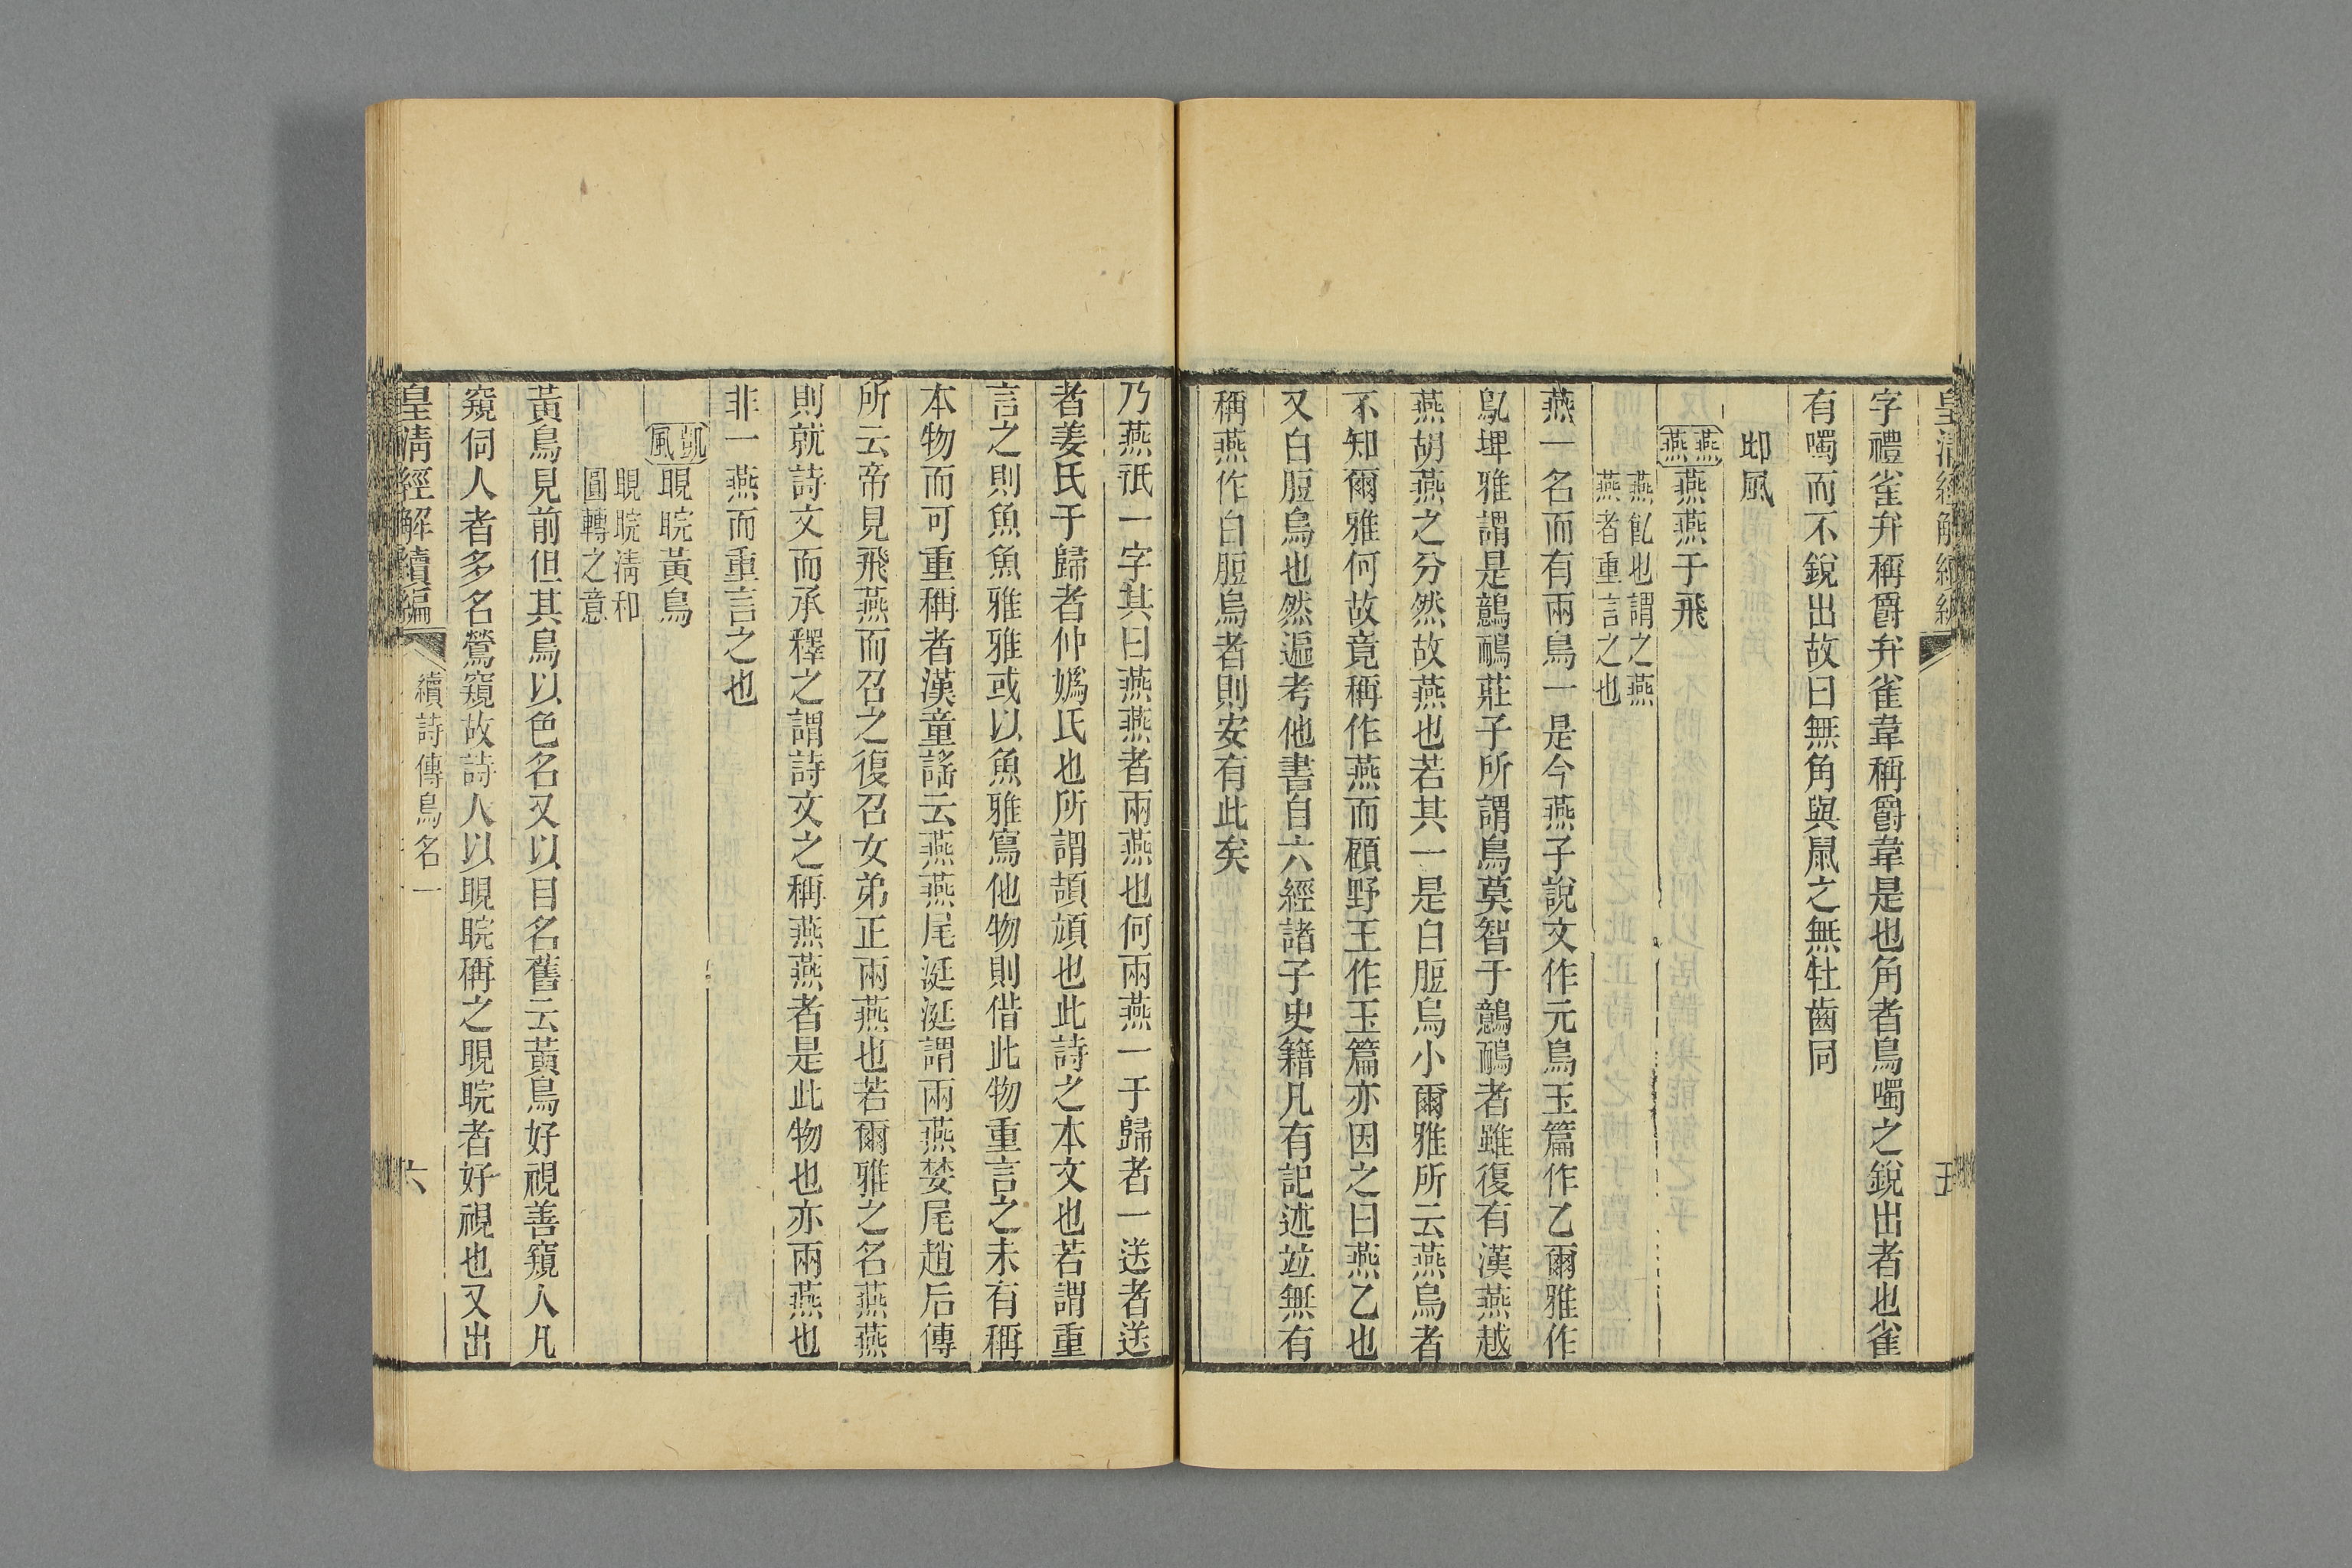 皇清經解續編
五
字禮雀弁稱爵弁雀韋稱爵韋是也角者鳥噣之銳出者也雀
有噣而不銳出故曰無角與鼠之無牡齒同
邶風
燕燕 燕燕于飛
燕鳦也謂之燕
燕者重言之也
燕一名而有兩鳥一是今燕子說文作元鳥玉篇作乙爾雅作
鳦埤雅謂是鷾鴯莊子所謂鳥莫智于鷾鴯者雖復有漢燕越
燕胡燕之分然故燕也若其一是白脰烏小爾雅所云燕烏者
又白脰烏也然遍考他書自六經諸子史籍凡有記述竝無有
不知爾雅何故竟稱作燕而顧野王作玉篇亦因之曰燕乙也
稱燕作白脰烏者則安有此矣
乃燕祇一字其曰燕燕者兩燕也何兩燕一于歸者一送者送
者姜氏于歸者仲嬀氏也所謂頡頏也此詩之本文也若謂重
言之則魚魚雅雅或以魚雅寫他物則借此物重言之未有稱
本物而可重稱者漢童謠云燕燕尾涎涎謂兩燕婪尾趙后傳
所云帝見飛燕而召之復召女弟正兩燕也若爾雅之名燕燕
則就詩文而承釋之謂詩文之稱燕燕者是此物也亦兩燕也
非一燕而重言之也
凱風 睍睆黃鳥
睍睆淸和
圓轉之意
黃鳥見前但其鳥以色名又以目名舊云黃鳥好視善窺人凡
窺伺人者多名鶯窺故詩人以睍睆稱之睍睆者好視也又出
皇淸經解續編
續詩傳鳥名一
六